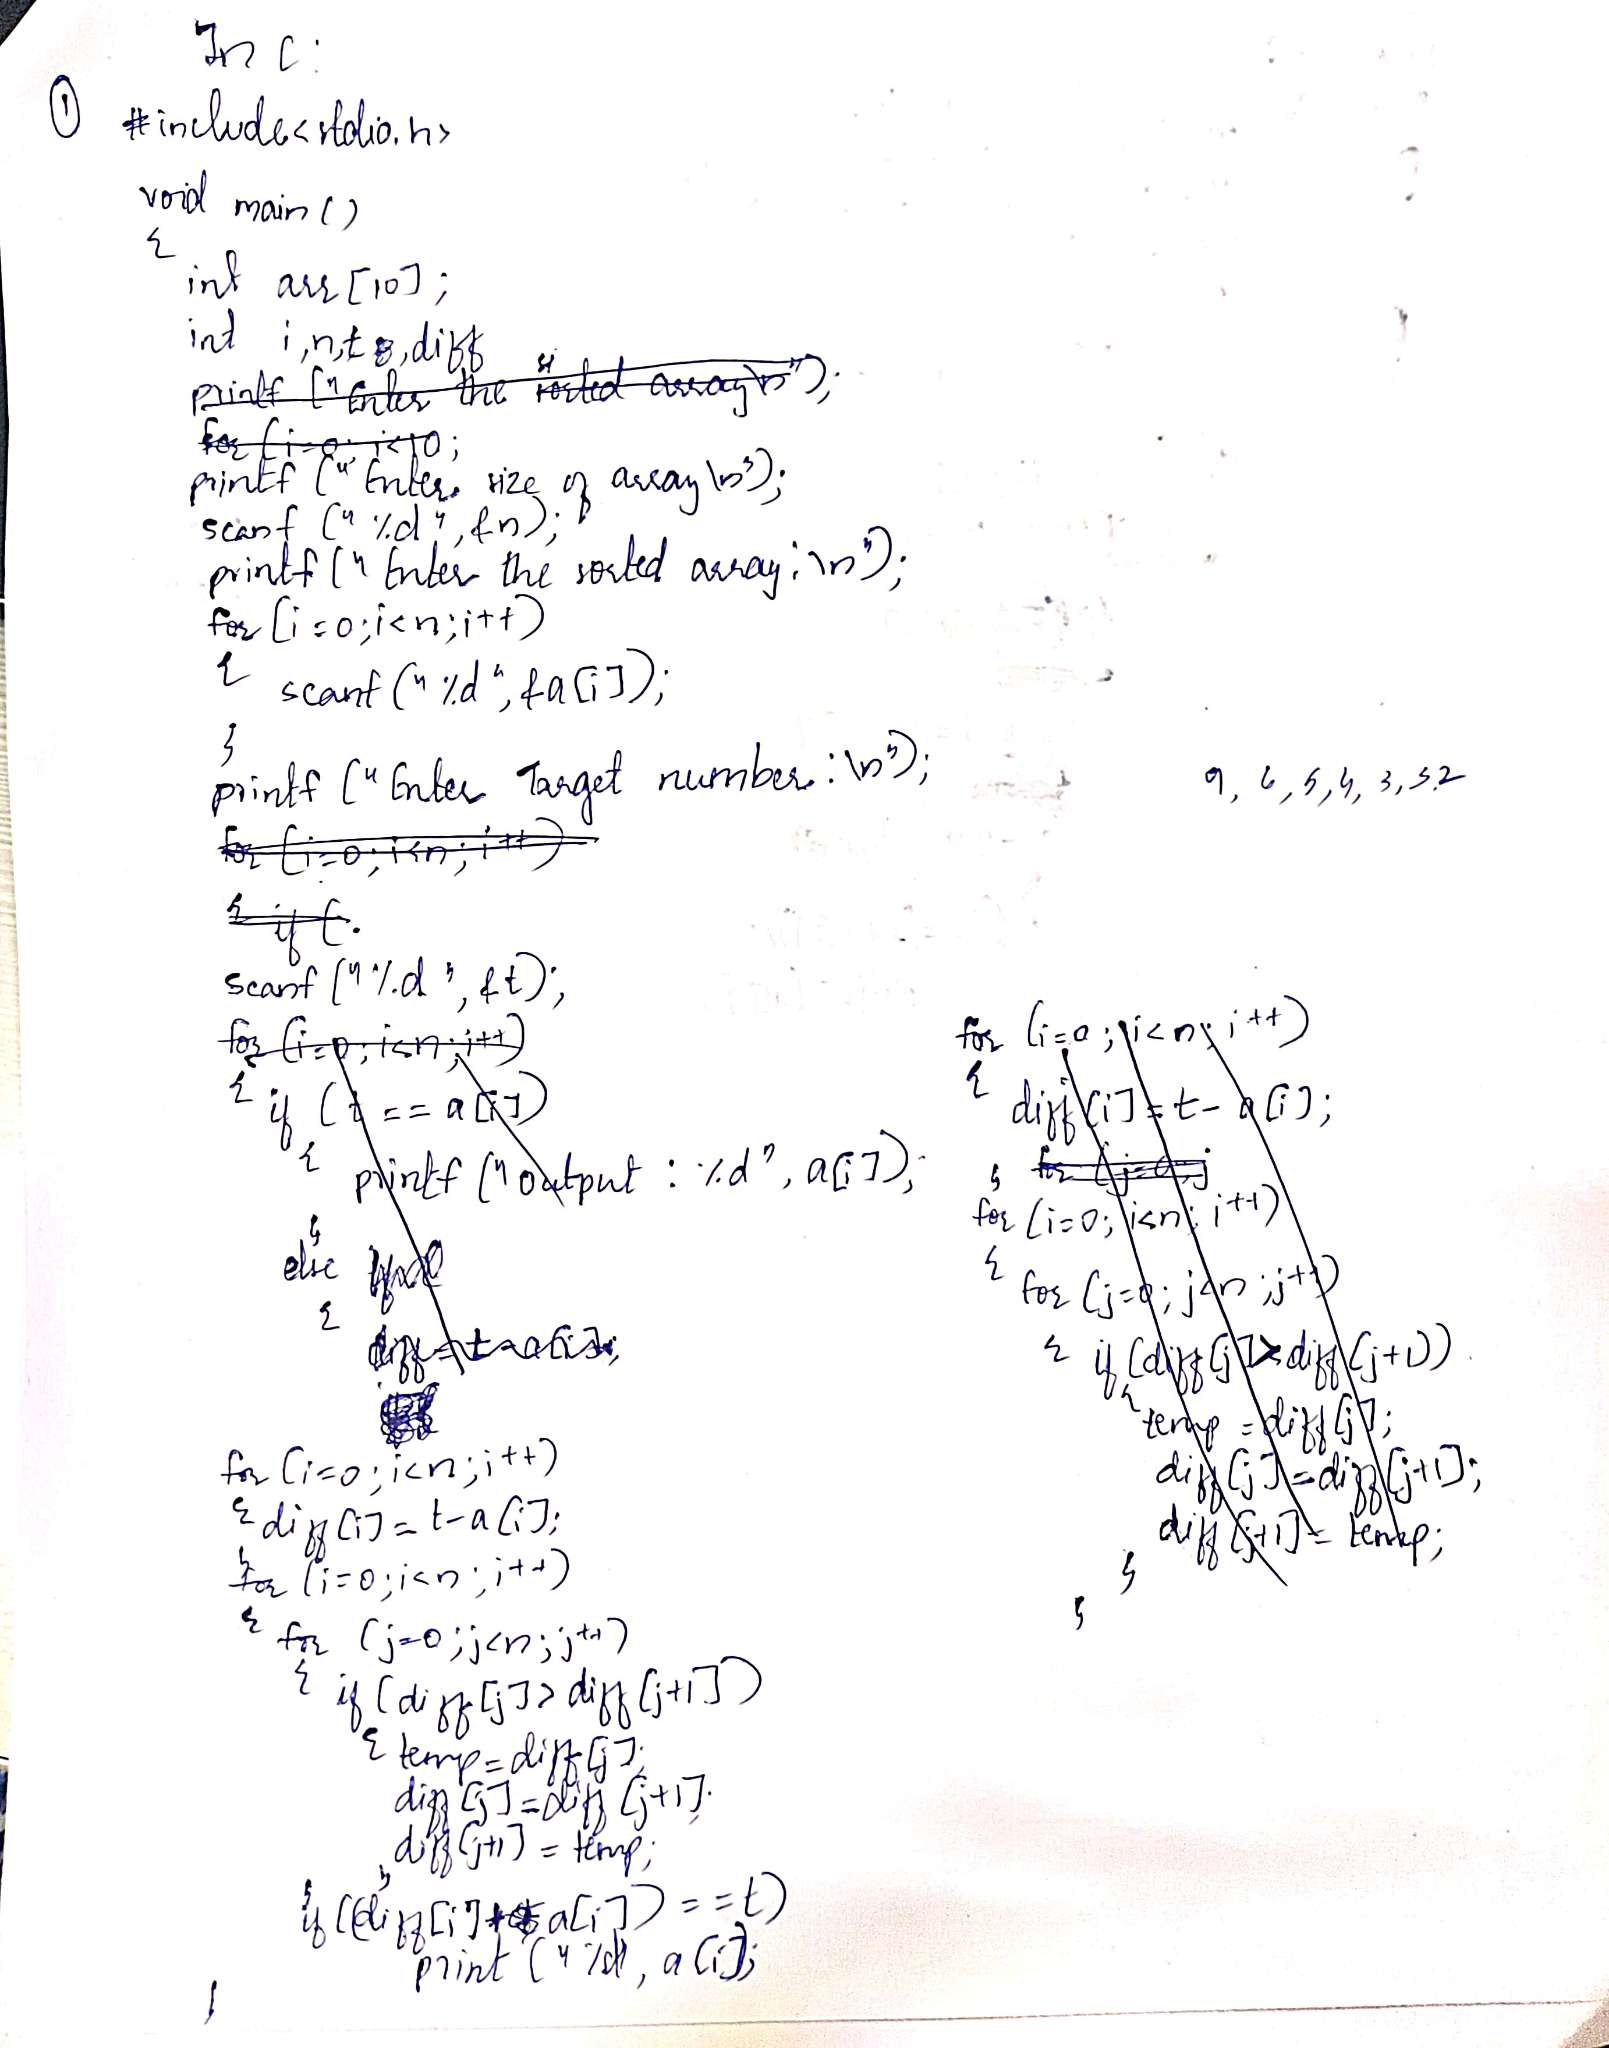 In C:
① #include<stdio.h>
void main()
{
int arr[10];
int i,n,t,diff
printf("Enter the sorted array\n");
for(i=0; i<10;
printf("Enter size of array\n");
scanf("%d",&n);
printf("Enter the sorted array:\n");
for(i=0;i<n;i++)
{ scanf("%d",&a[i]);
}
printf("Enter Target number:\n");
for(i=0;i<n;i++)
{ if(
scanf("%d",&t);
for(i=0;i<n;i++)
{ if(t==a[i])
{ printf("output : %d", a[i]);
}
else
{
diff=t-a[i];
for(i=0;i<n;i++)
{ diff[i]=t-a[i];
}
for(i=0;i<n;i++)
{ for(j=0;j<n;j++)
{ if(diff[j]>diff[j+1])
{ temp=diff[j];
diff[j]=diff[j+1].
diff[j+1]=temp;
}
}
if((diff[i]+a[i])==t)
print("%d", a[i]);
}
9, 6,5,4, 3,3.2
for(i=0;i<n;i++)
{
diff[i]=t-a[i];
} for(j=0;j
for(i=0;i<n;i++)
{ for(j=0;j<n;j++)
{ if(diff[j]>diff[j+1])
{ temp=diff[j];
diff[j]=diff[j+1];
diff[j+1]=temp;
}
}